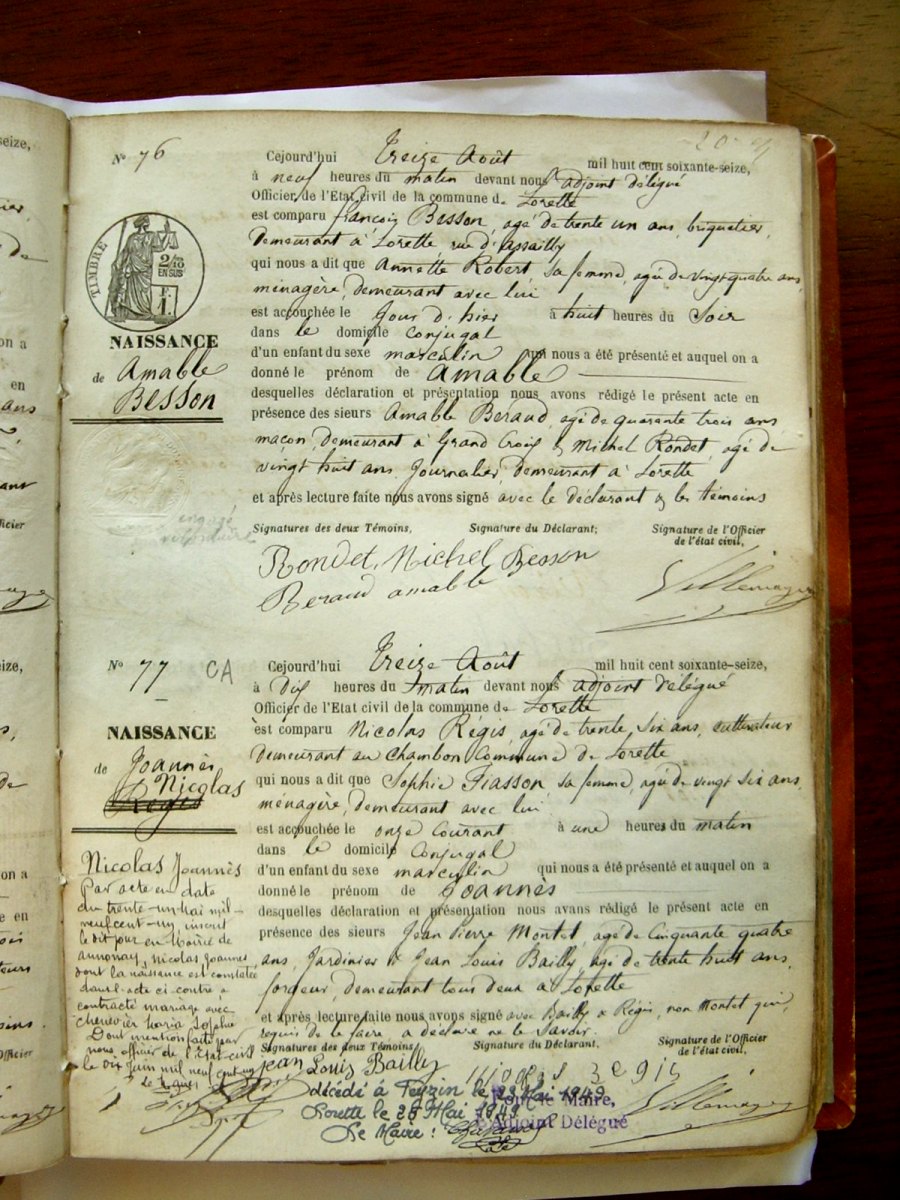 N° 76
TIMBRE
2/10
EN SUS
1F
NAISSANCE
de Amable
Besson
Cejourd'hui Treize Août mil huit cent soixante-seize,
à neuf heures du matin devant nous adjoint délégué
Officier de l'Etat civil de la commune de Lorette
est comparu françois Besson, agé de trente un ans, briquetier,
Demeurant à Lorette rue d'assailly
qui nous a dit que Annette Robert, sa femme, agée de vingt quatre ans,
ménagère, demeurant avec lui
est accouchée le Jour d'hier à huit heures du Soir
dans le domicile conjugal
d'un enfant du sexe masculin qui nous a été présenté et auquel on a
donné le prénom de Amable
desquelles déclaration et présentation nous avons rédigé le présent acte en
présence des sieurs Amable Beraud, agé de quarante trois ans
maçon, demeurant à Grand Croix & Michel Rondet, agé de
vingt huit ans, Journalier, demeurant à Lorette
et après lecture faite nous avons signé avec le déclarant & les témoins
engagé
volontaire
Signatures des deux Témoins, Signature du Déclarant; Signature de l'Officier
de l'état civil,
Rondet, Michel Besson
Beraud amable
Villemagne
N° 77 CA
NAISSANCE
de Joannès
Nicolas
Régis
Cejourd'hui Treize Août mil huit cent soixante-seize,
à Dix heures du matin devant nous adjoint délégué
Officier de l'Etat civil de la commune de Lorette
est comparu Nicolas Régis, agé de trente six ans, cultivateur
demeurant au Chambon Commune de Lorette
qui nous a dit que Sophie Fiasson, sa femme, agée de vingt six ans,
ménagère, demeurant avec lui
est accouchée le onze courant à une heures du matin
dans le domicile conjugal
d'un enfant du sexe masculin qui nous a été présenté et auquel on a
donné le prénom de Joannès
desquelles déclaration et présentation nous avons rédigé le présent acte en
présence des sieurs Jean Pierre Montet, agé de Cinquante quatre
ans, Jardinier & Jean Louis Bailly, agé de trente huit ans,
forgeur, demeurant tous deux à Lorette
et après lecture faite nous avons signé avec Bailly & Régis, non Montet qui
requis de le faire a déclaré ne le Savoir.
Signatures des deux Témoins, Signature du Déclarant, Signature de l'Officier
de l'état civil,
Jean Louis Bailly
Villemagne
Nicolas Joannès
Par acte en date
du trente-un Mai mil
neuf cent-un, inscrit
le dit jour en Mairie de
annonay, nicolas joannes
dont la naissance est constatée
dans l'acte ci-contre a
contracté mariage avec
chenevier Maria Sophie
Dont mention faite par
nous, officier de l'Etat-civil
le dix Juin mil neuf cent un
décédé à Feyzin le 23 Mai 1949
Lorette le 28 Mai 1949
Le Maire :
Pour le Maire,
Adjoint Délégué